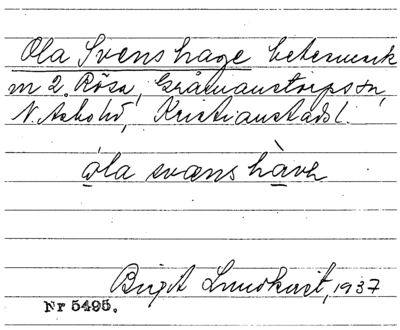 Ola Svens hage betesmark
m 2. Rösa, Gråmanstorps sn,
N. Åsbo hd, Kristianstads l.
òla svæns hàvə
Birgit Lundkvist, 1937
Nr 5495.